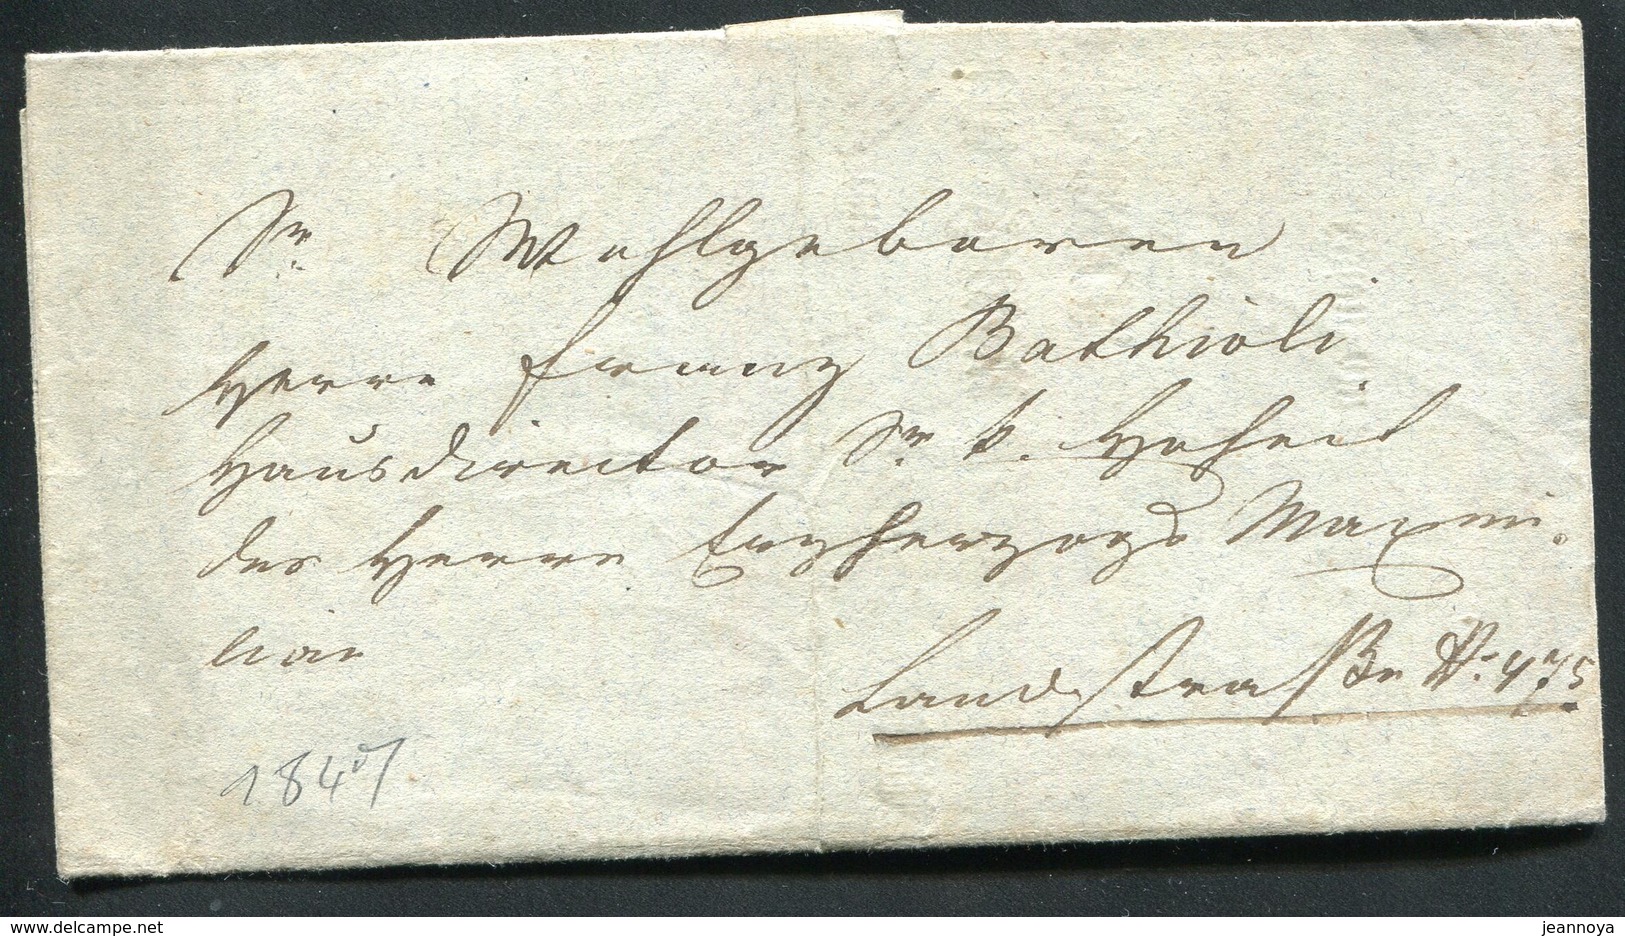 Sr Wohlgeboren
Herrn Franz Bathioli
Hausdirector Sr k. Hoheit
des Herrn Erzherzogs Maximi-
lian
Landstraße No: 475
1847
delcampe.net
jeannoya